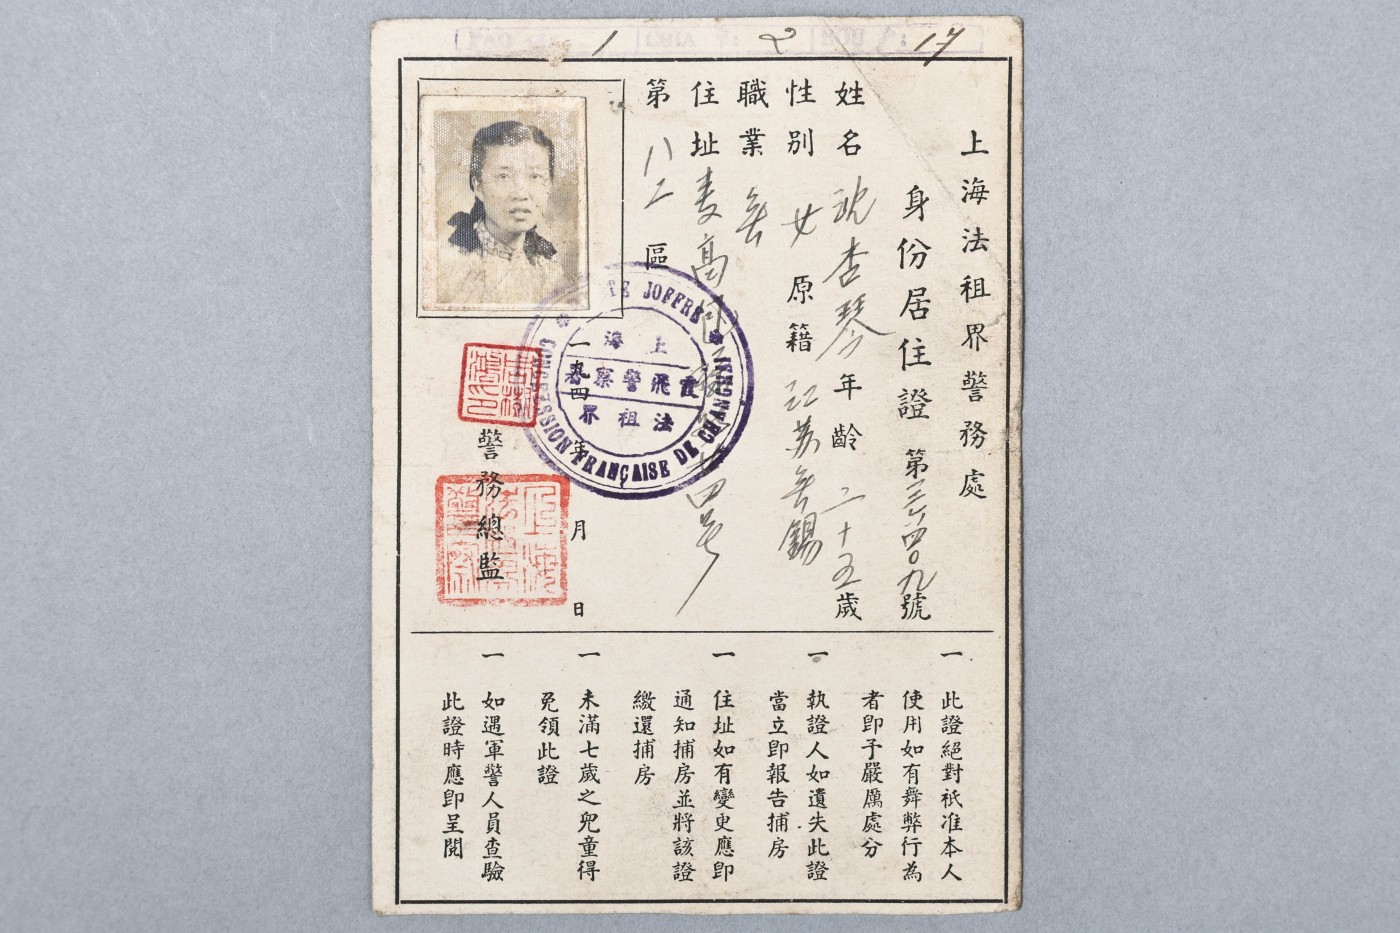 1 2 17
上海法租界警務處
身份居住證 第三四〇九號
姓名 沈杏琴 年齡 二十五歲
性別 女 原籍 江蘇無錫
職業 無
住址 麥高 四号
第 八二 區
一九四 年 月 日
警務總監
JOFFRE
CONCESSION FRANÇAISE DE CHANGHAI
上海
霞飛警察署
法租界
一 此證絕對祇准本人
使用如有舞弊行為
者卽予嚴厲處分
一 執證人如遺失此證
當立卽報告捕房
一 住址如有變更應卽
通知捕房並將該證
繳還捕房
一 未滿七歲之兒童得
免領此證
一 如遇軍警人員查驗
此證時應卽呈閱